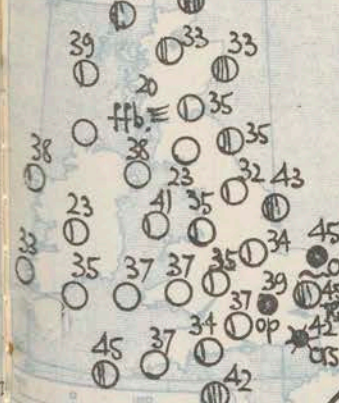 39 33 33
20
ffb. 35
35
38 38
23 32 43
23 41 35
34 45
33
35 37 37 35 39 45
37 op 42
34
45 37
42